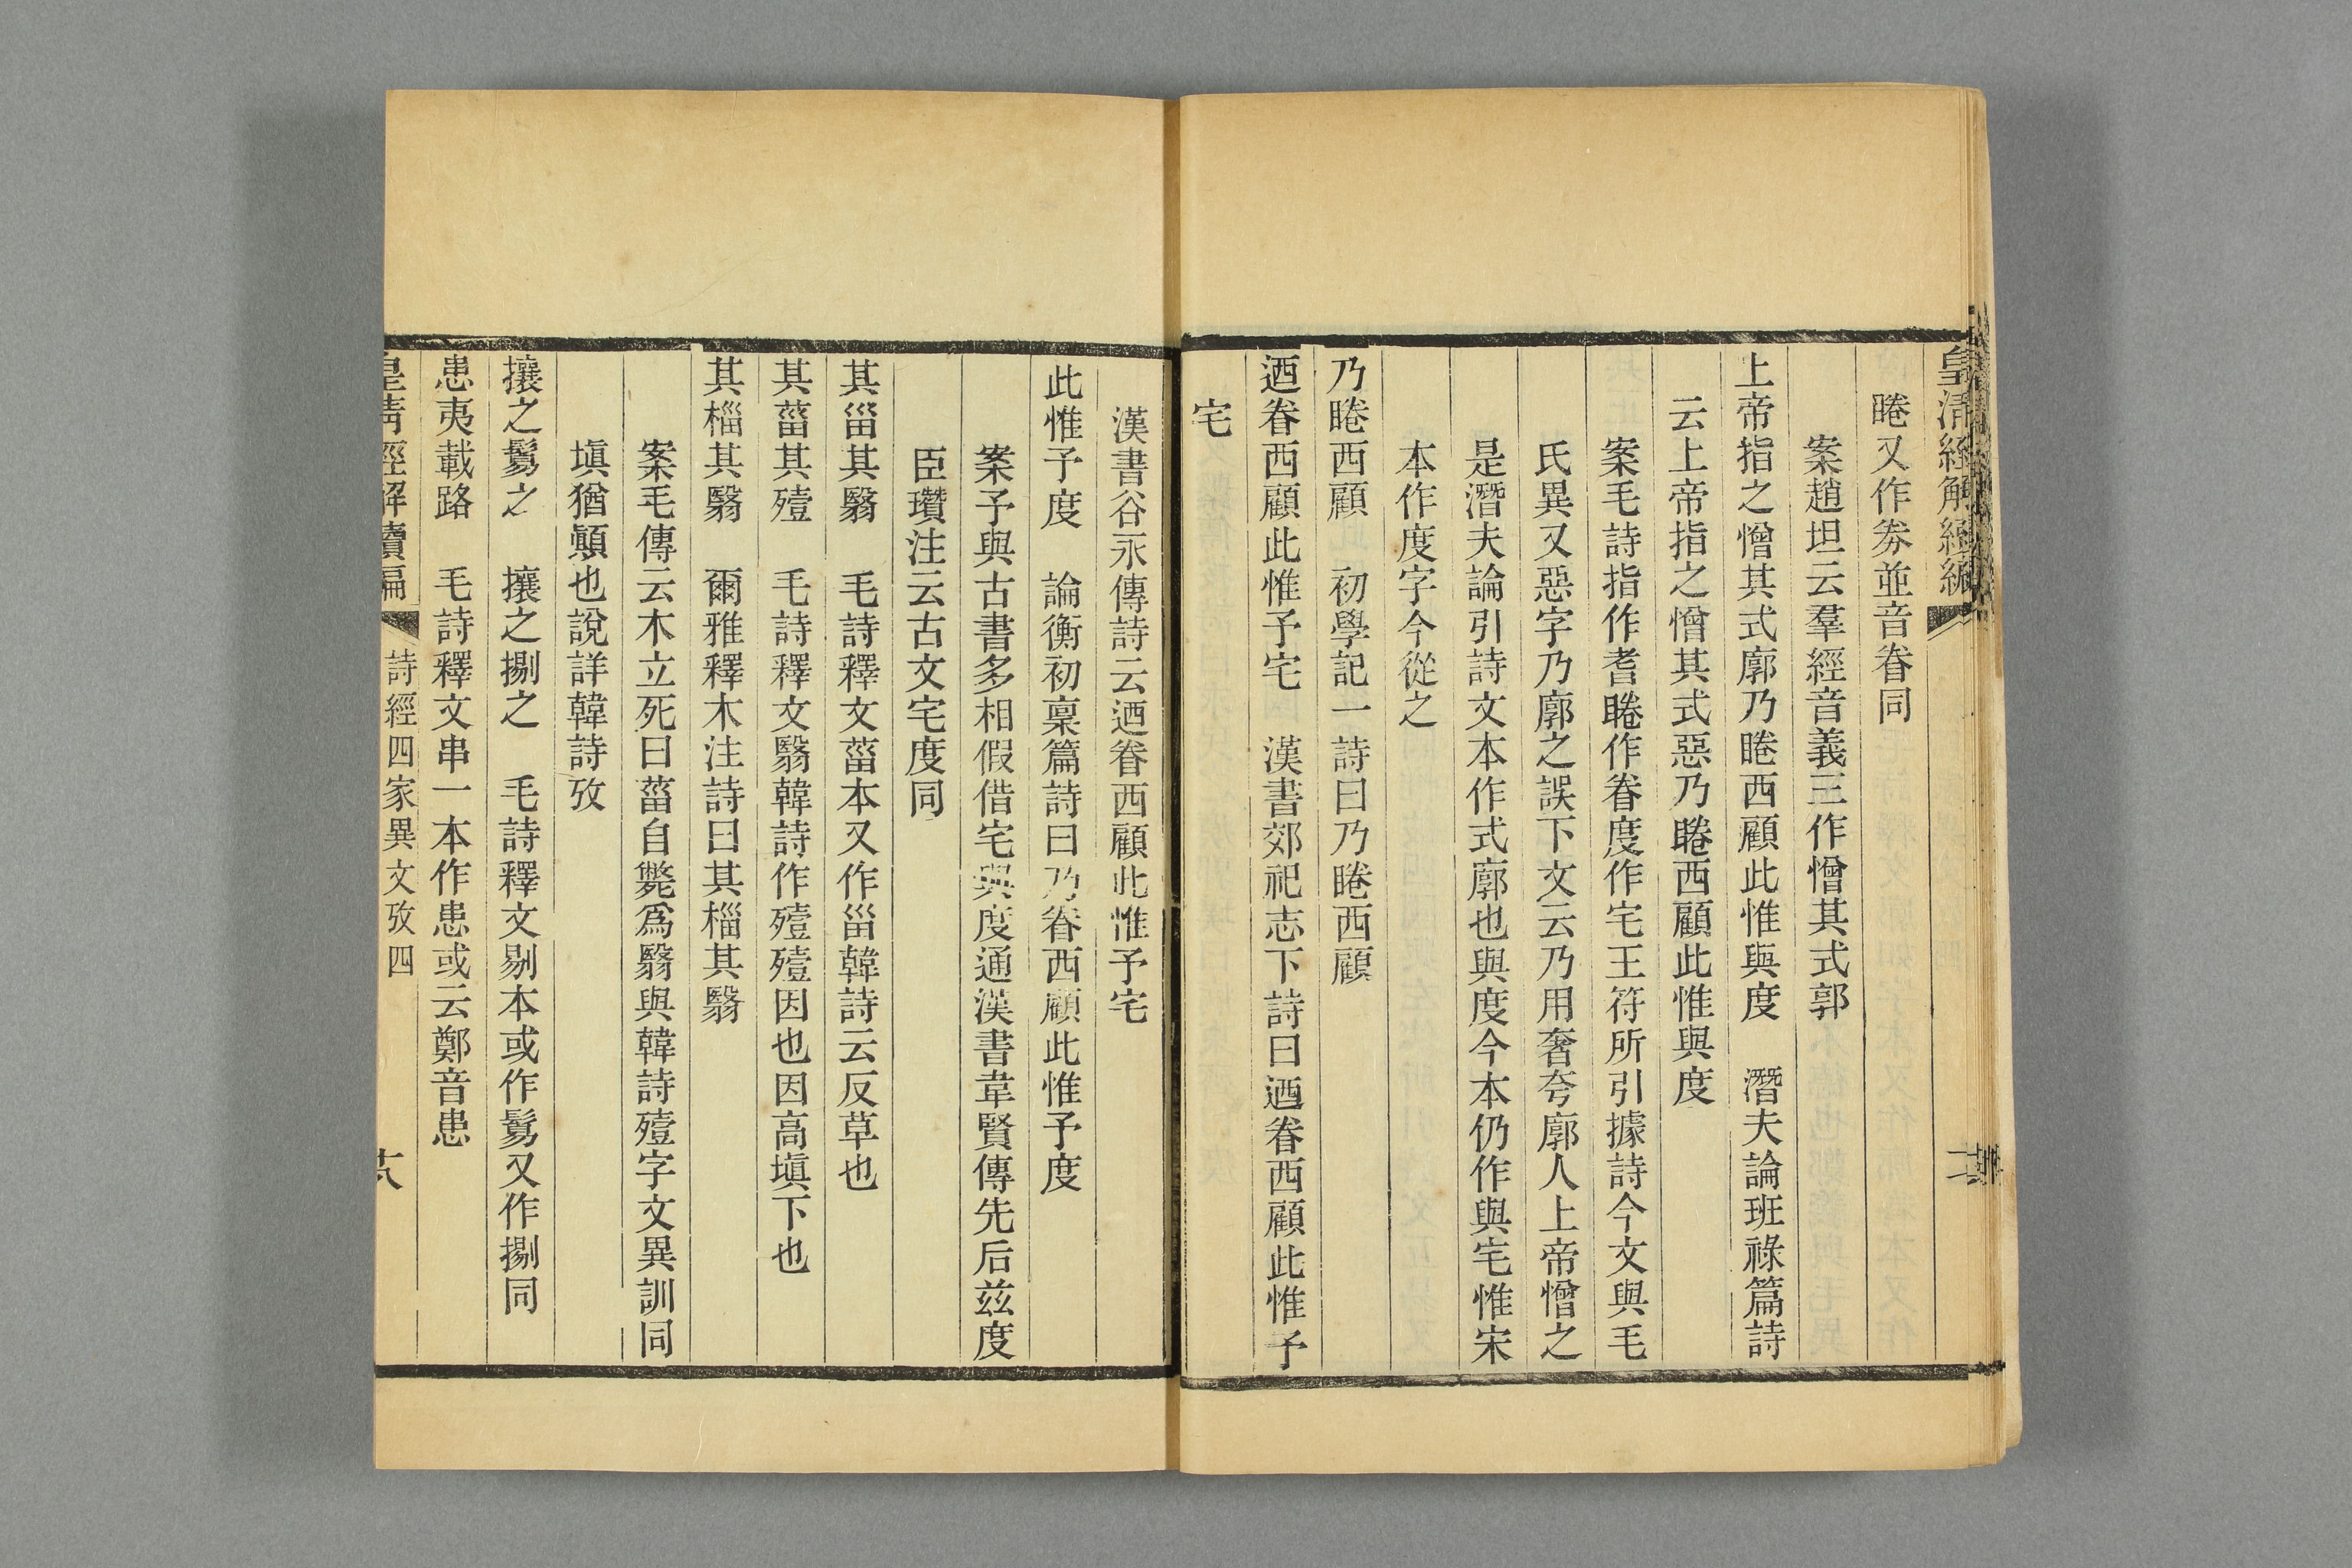 皇清經解續編
睠又作劵並音眷同
案趙坦云羣經音義三作憎其式郭
上帝指之憎其式廓乃睠西顧此惟與度　潛夫論班祿篇詩
云上帝指之憎其式惡乃睠西顧此惟與度
案毛詩指作耆睠作眷度作宅王符所引據詩今文與毛
氏異又惡字乃廓之誤下文云乃用奢夸廓人上帝憎之
是潛夫論引詩文本作式廓也與度今本仍作與宅惟宋
本作度字今從之
乃睠西顧　初學記一詩曰乃睠西顧
迺眷西顧此惟予宅　漢書郊祀志下詩曰迺眷西顧此惟予
宅
漢書谷永傳詩云迺眷西顧此惟予宅
此惟予度　論衡初稟篇詩曰乃眷西顧此惟予度
案予與古書多相假借宅與度通漢書韋賢傳先后兹度
臣瓚注云古文宅度同
其甾其翳　毛詩釋文菑本又作甾韓詩云反草也
其菑其殪　毛詩釋文翳韓詩作殪殪因也因高塡下也
其椔其翳　爾雅釋木注詩曰其椔其翳
案毛傳云木立死曰菑自斃爲翳與韓詩殪字文異訓同
塡猶顚也說詳韓詩攷
攘之鬄之　攘之捌之　毛詩釋文剔本或作鬄又作捌同
患夷載路　毛詩釋文串一本作患或云鄭音患
皇清經解續編
詩經四家異文攷四